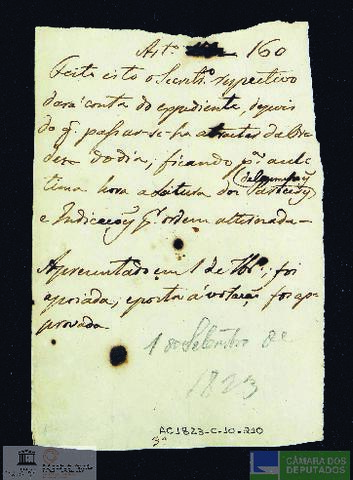 Art.º 160
Feita isto o Secretr.º respectivo
dará conta do expediente, depois
do q. passar-se-ha a tratar da Or-
dem do dia, ficando p.ª a ul-
tima hora a leitura dos Pareceres
e Indicações q. ordem alternada
Apresentado em 1 de 7br.º; foi
apoiada; e posta á votação foi ap-
provada
1 de Setembro de
1823
AC1823-C-10-210
3ª
CÂMARA DOS
DEPUTADOS